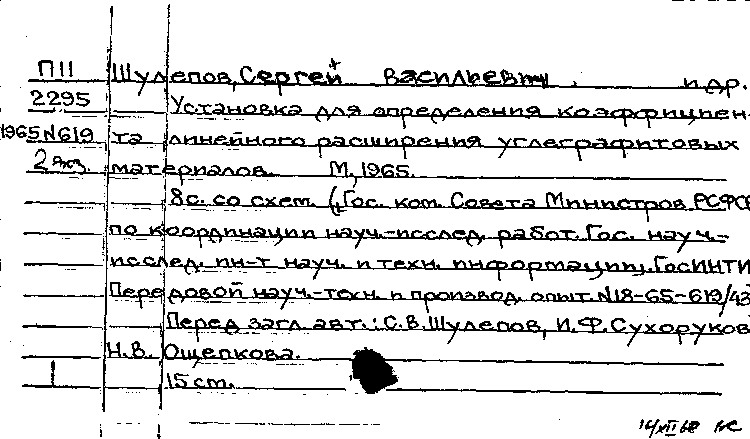 П11 Шулепов, Сергей Васильевич и др.
2295 Установка для определения коэффициен-
1965N619 та линейного расширения углеграфитовых
2 экз. материалов. М, 1965.
8с. со схем. (Гос. ком. Совета Министров РСФСР
по координации науч.-исслед. работ. Гос. науч.-
исслед. ин-т науч. и техн. информации. ГосИНТИ
Передовой науч.-техн. и производ. опыт. N18-65-619/43
Перед загл. авт.: С.В. Шулепов, И.Ф. Сухоруков
Н.В. Ощепкова.
1 15 cm.
14/XII 68